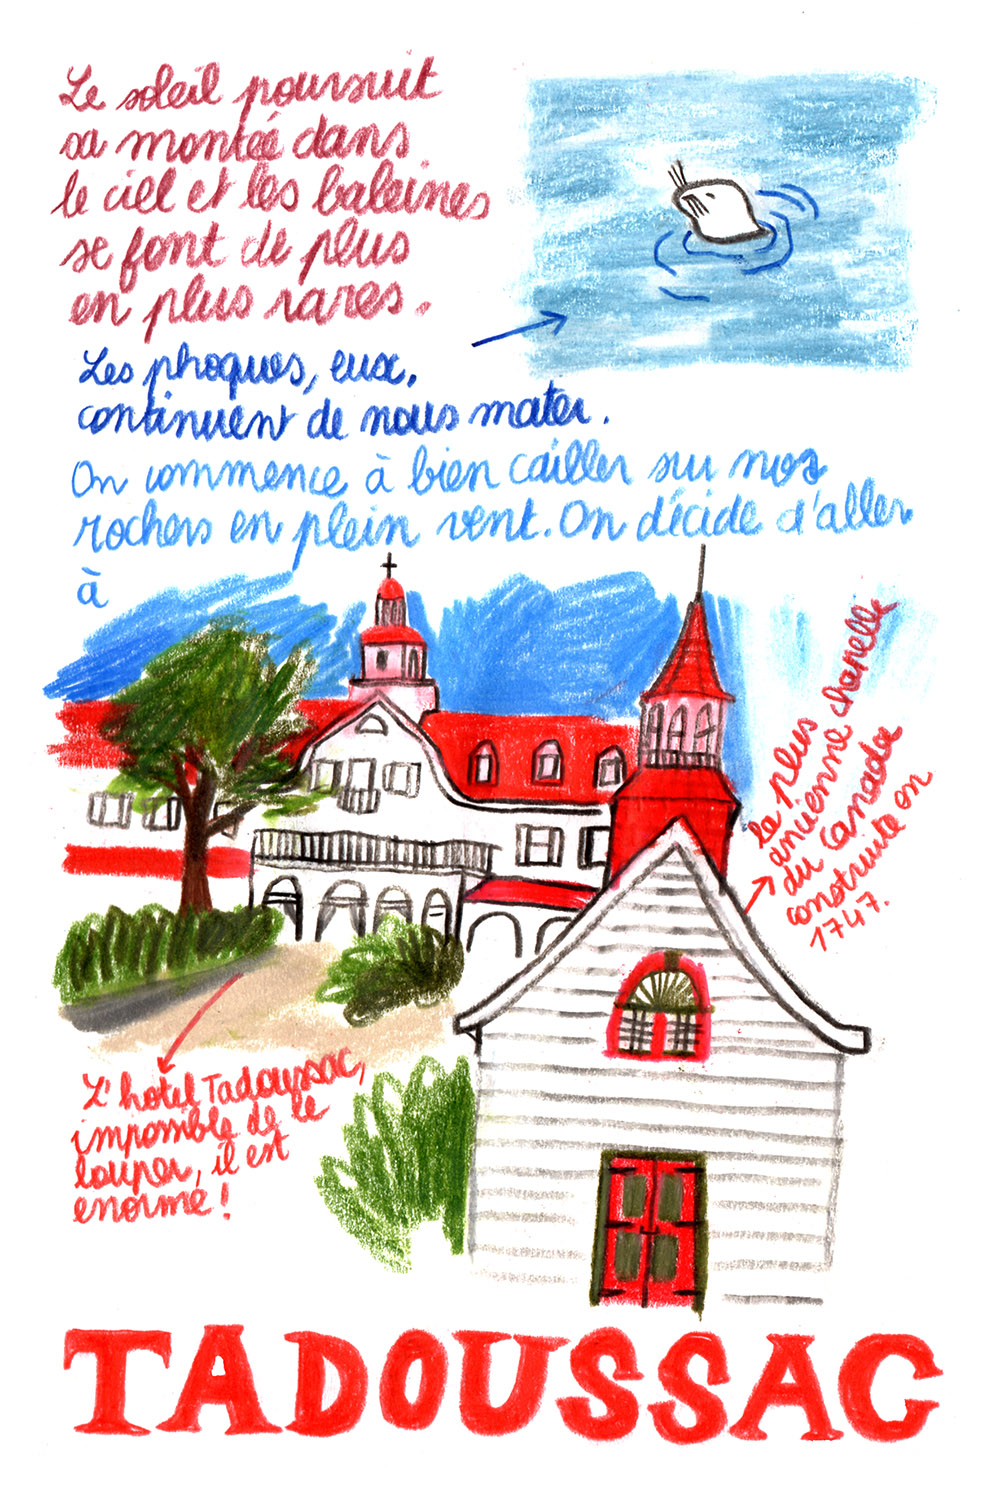 Le soleil poursuit
sa montée dans
le ciel et les baleines
se font de plus
en plus rares.
Les phoques, eux,
continuent de nous mater.
On commence à bien cailler sur nos
rochers en plein vent. On décide d'aller
à
la plus
ancienne chapelle
du Canada
construite en
1747.
L'hotel Tadoussac,
impossible de le
louper, il est
enorme !
TADOUSSAC